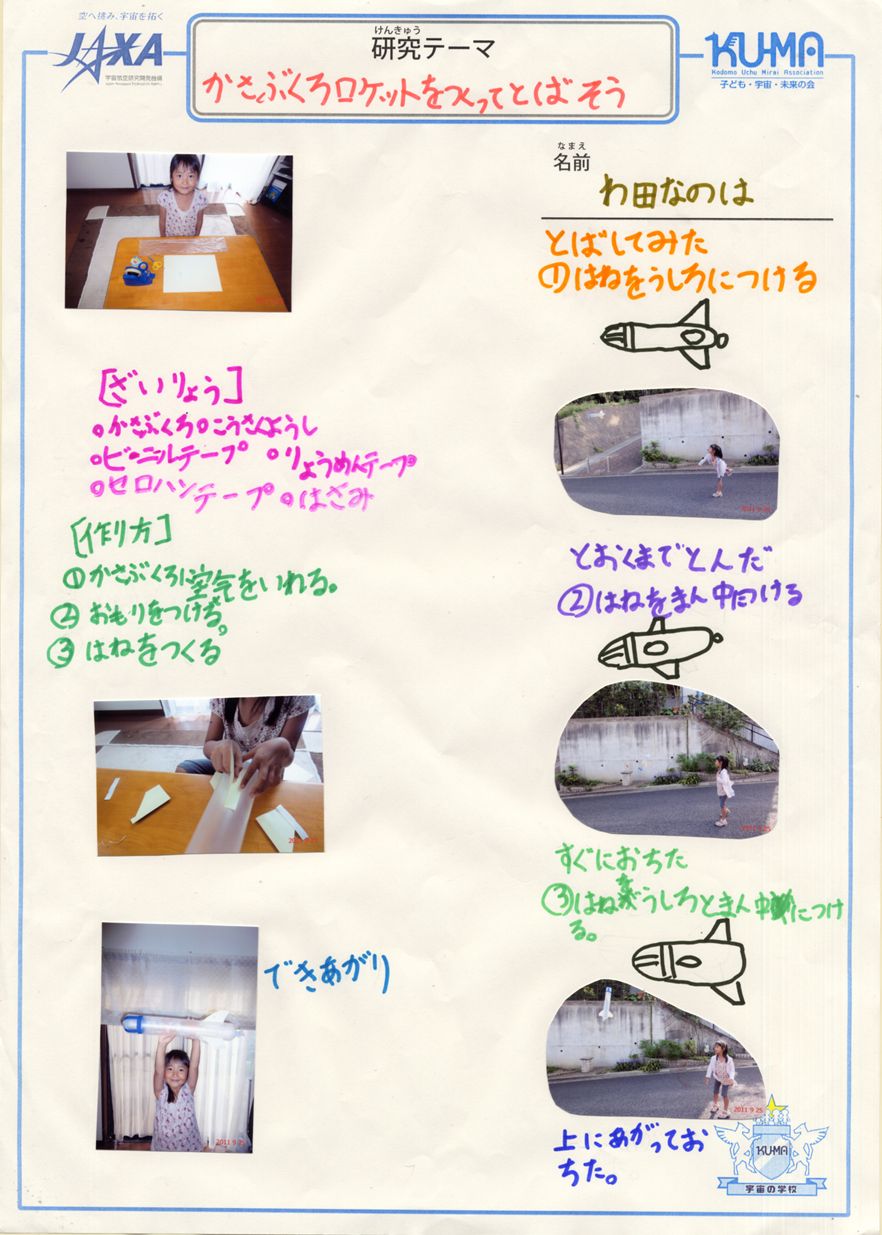 空へ挑み、宇宙を拓く
JAXA
宇宙航空研究開発機構
Japan Aerospace Exploration Agency
けんきゅう
研究テーマ
かさぶくろロケットをつくってとばそう
KU-MA
Kodomo Uchu Mirai Association
子ども・宇宙・未来の会
なまえ
名前
わ田なのは
[ざいりょう]
○かさぶくろ○こうさくようし
○ビニルテープ ○りょうめんテープ
○セロハンテープ○はさみ
[作り方]
①かさぶくろに空気をいれる。
②おもりをつける。
③はねをつくる
できあがり
2011 9 25
とばしてみた
①はねをうしろにつける
2011 9 25
とおくまでとんだ
②はねをまん中につける
2011 9 25
すぐにおちた
③はねをうしろとまん中につけ
る。
2011 9 25
上にあがってお
ちた。
KU-MA
宇宙の学校